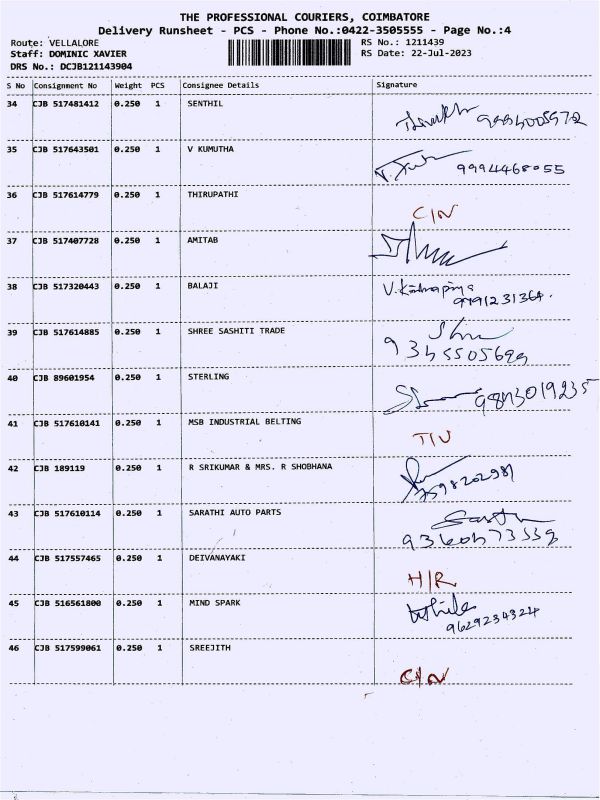 THE PROFESSIONAL COURIERS, COIMBATORE
Delivery Runsheet - PCS - Phone No.:0422-3505555 - Page No.:4
Route: VELLALORE RS No.: 1211439
Staff: DOMINIC XAVIER RS Date: 22-Jul-2023
DRS No.: DCJB121143904
S No Consignment No Weight PCS Consignee Details Signature
34 CJB 517481412 0.250 1 SENTHIL
35 CJB 517643501 0.250 1 V KUMUTHA
9994468055
36 CJB 517614779 0.250 1 THIRUPATHI
C/N
37 CJB 517407728 0.250 1 AMITAB
38 CJB 517320443 0.250 1 BALAJI
39 CJB 517614885 0.250 1 SHREE SASHITI TRADE
40 CJB 89601954 0.250 1 STERLING
41 CJB 517610141 0.250 1 MSB INDUSTRIAL BELTING
42 CJB 189119 0.250 1 R SRIKUMAR & MRS. R SHOBHANA
43 CJB 517610114 0.250 1 SARATHI AUTO PARTS
44 CJB 517557465 0.250 1 DEIVANAYAKI
H/R
45 CJB 516561800 0.250 1 MIND SPARK
9629234324
46 CJB 517599061 0.250 1 SREEJITH
C/N